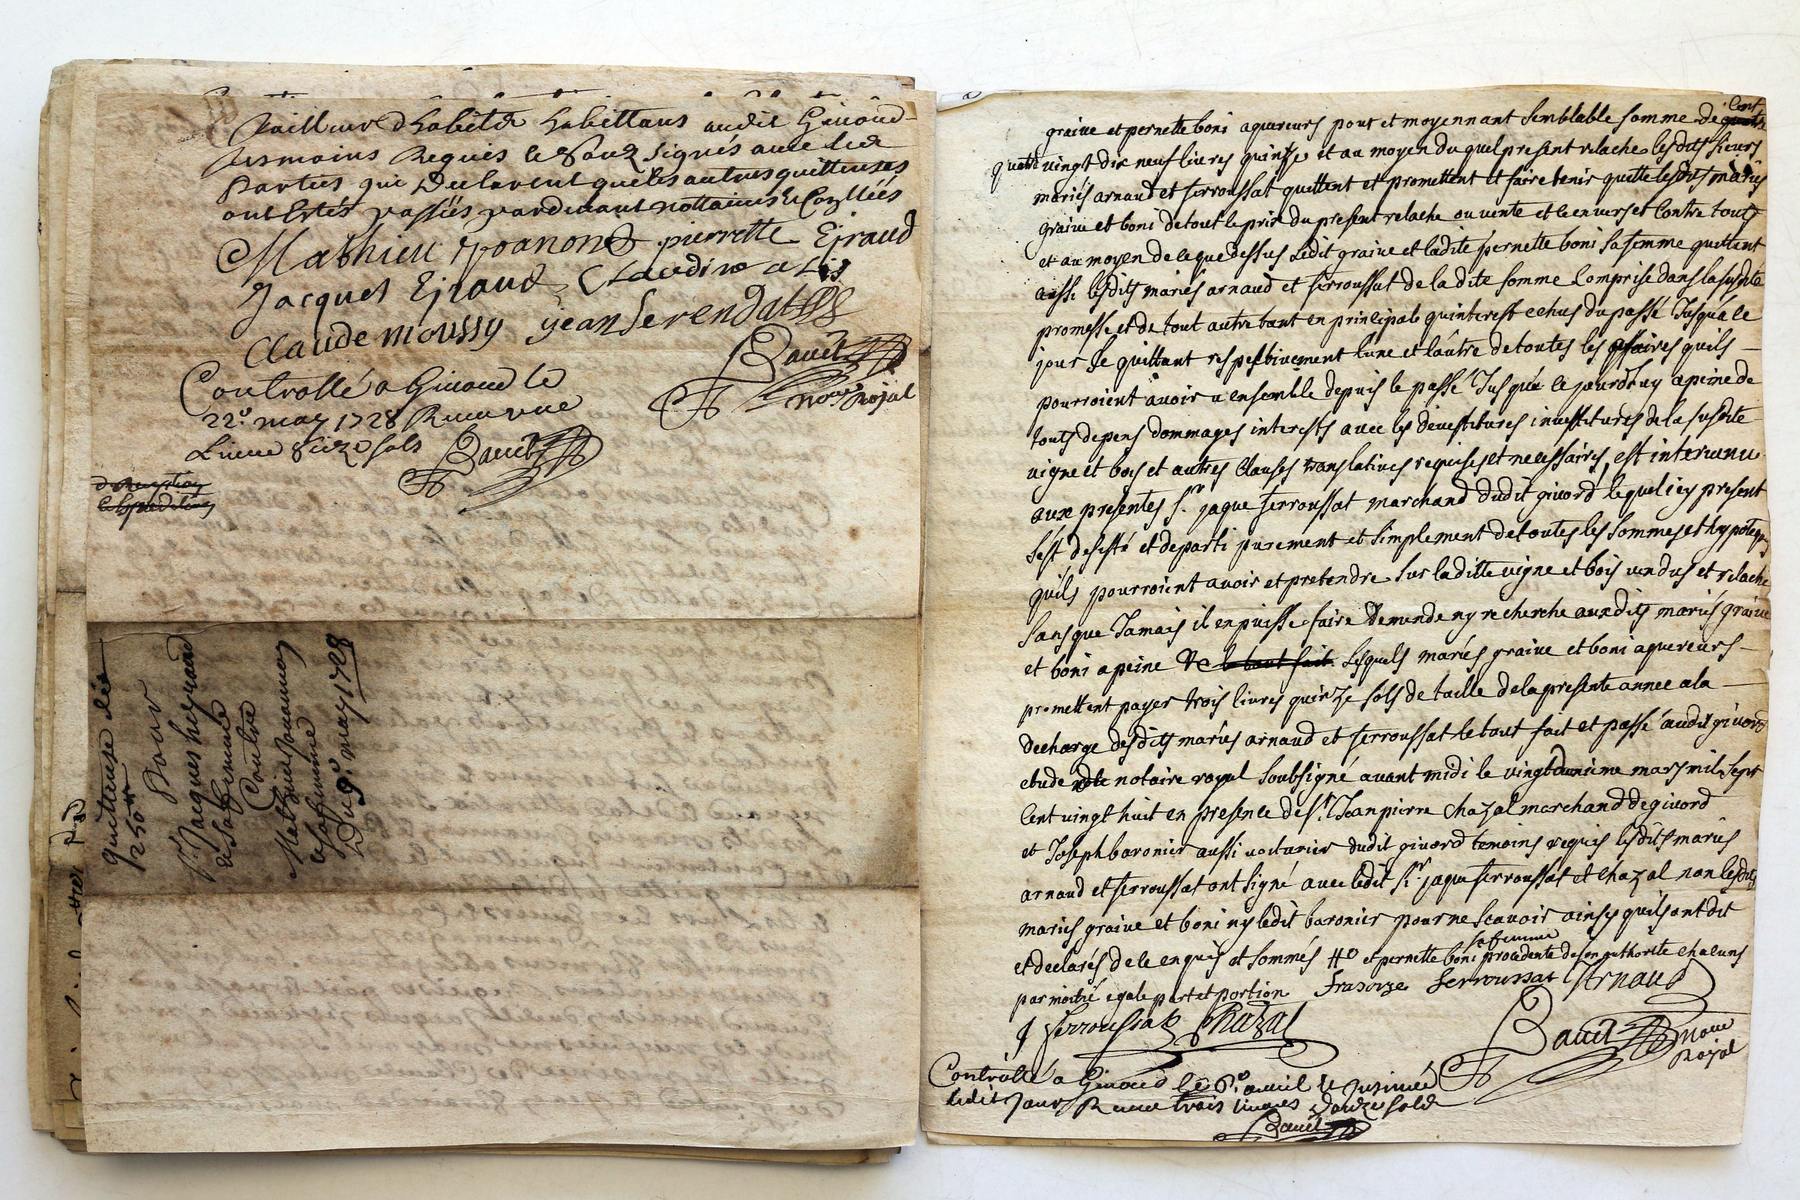 tailleur d'habits habittans audit Givord
tesmoins Requis le Soubsignés avec lesd
Parties qui Declarent que les autres quittances
ont Estés passées pardevant nottaires &
Mathieu pierrette Ejraud
Jacques Ejraud Claudine
Claude moussy jean serendat
Bauit
nore Rojal
Controllé a Givord le
22e. may 1728 Receu une
Livre Seize sols
Bauit
quittense de
250 ll
Pour
Sr Jaques heyraud
& Sa femme
Contre
Mathieu Jouannon
& sa femme
Du 9e. may 1728
cent
graive et pernette boni aquereurs pour et moyennant semblable somme de
quatre vingt dix neuf livres quinze et au moyen du quel present relache lesdits sieurs
mariés arnaud et ferroussat quittent et promettent et faire tenir quitte lesdits mariés
graive et boni de tout le prix du present relache ou vente et le envers et contre touts
et au moyen de le que dessus ledit graive et ladite pernette boni sa femme quittent
aussi lesdits mariés arnaud et ferroussat de la dite somme Comprise dans la susdite
promesse et de tout autre tant en principale qu'interest echus du passé Jusqua le
jour se quittant respectivement l'une et l'autre de toutes les affaires quils
pourroient avoir u ensemble depuis le passé Jusqua le jourdhuy a peine de
touts depens dommages interests avec les devestitures investitures de la susdite
vigne et bois et autres Clauses translatives requises et necessaires, est intervenu
aux presentes sr. jaque ferroussat marchand dudit givord lequel icy present
sest desisté et departi purement et simplement de toutes les sommes et hypoteques
quils pourroient avoir et pretendre sur laditte vigne et bois vendus et relache
sans que Jamais il en puisse faire demende ny recherche auxdits mariés graive
et boni a peine &c le tout fait lesquels mariés graive et boni aquereurs
promettent payer trois livres quinze sols de taille de la presente annee a la
decharge desdits mariés arnaud et ferroussat le tout fait et passé audit givord
etude notaire royal soubsigné avant midi le vingt mars mil sept
cent vingt huit en presence de sr. Jean pierre chazal marchand de givord
et Joseph baronier aussi voiturier dudit givord temoins requis lesdits mariés
arnaud et ferroussat ont signé avec ledit sr. jaque ferroussat et chazal non lesdits
mariés graive et boni ny ledit baronier pour ne scavoir ainsy quils ont dit
sa femme
et declarés de le enquis et sommés #o et pernette boni procedente de son authorité chacuns
par moitié egale part et portion ferroussat Arnaud
J ferroussat Chazal
Bauit nore
Rojal
Controllé a Givord le avril &
ledit Jour Receu trois livres douze sols
Bauit